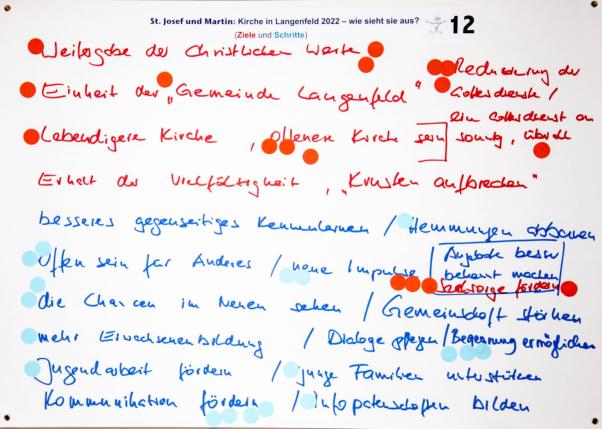 St. Josef und Martin: Kirche in Langenfeld 2022 – wie sieht sie aus? 12
(Ziele und Schritte)
Weitergabe der Christlichen Werte
Einheit der „Gemeinde Langenfeld"
Lebendigere Kirche, offenere Kirche sein
Reduzierung der
Gottesdienste /
ein Gottesdienst am
sonntg, überall
Erhalt der Vielfältigkeit, „Krusten aufbrechen"
besseres gegenseitiges Kennenlernen / Hemmungen abbauen
Offen sein für Anderes / neue Impulse /
Angebote besser
bekannt machen
Seelsorge fördern
die Chancen im Neuen sehen / Gemeinschaft stärken
mehr Erwachsenenbildung / Dialoge pflegen / Begegnung ermöglichen
Jugendarbeit fördern / junge Familien unterstützen
Kommunikation fördern / Infopatenschaften bilden